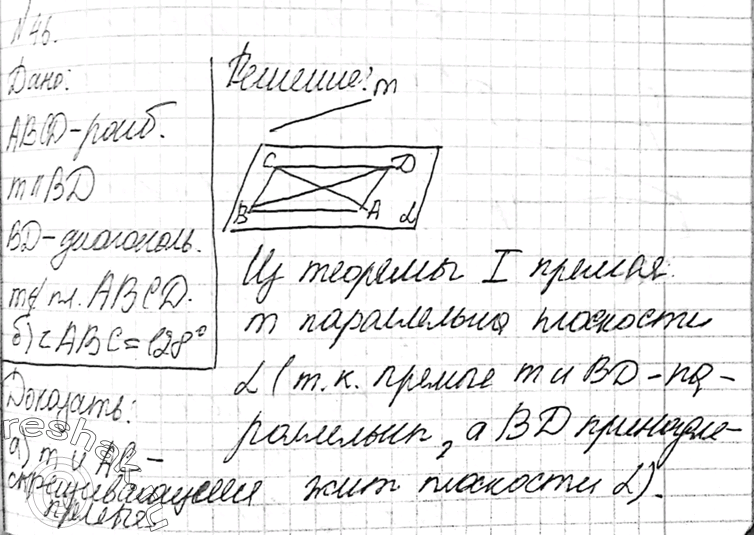 №46.
Дано:
ABCD-ромб.
m || BD
BD-диагональ.
m⊄ пл. ABCD.
б) ∠ABC=128°
Доказать:
а) m и AC -
скрещивающиеся
прямые
Решение:
m
C D
B A α
Из теоремы I прямая
m параллельна плоскости
α (т.к. прямые m и BD-па-
раллельны, а BD принадле-
жит плоскости α).